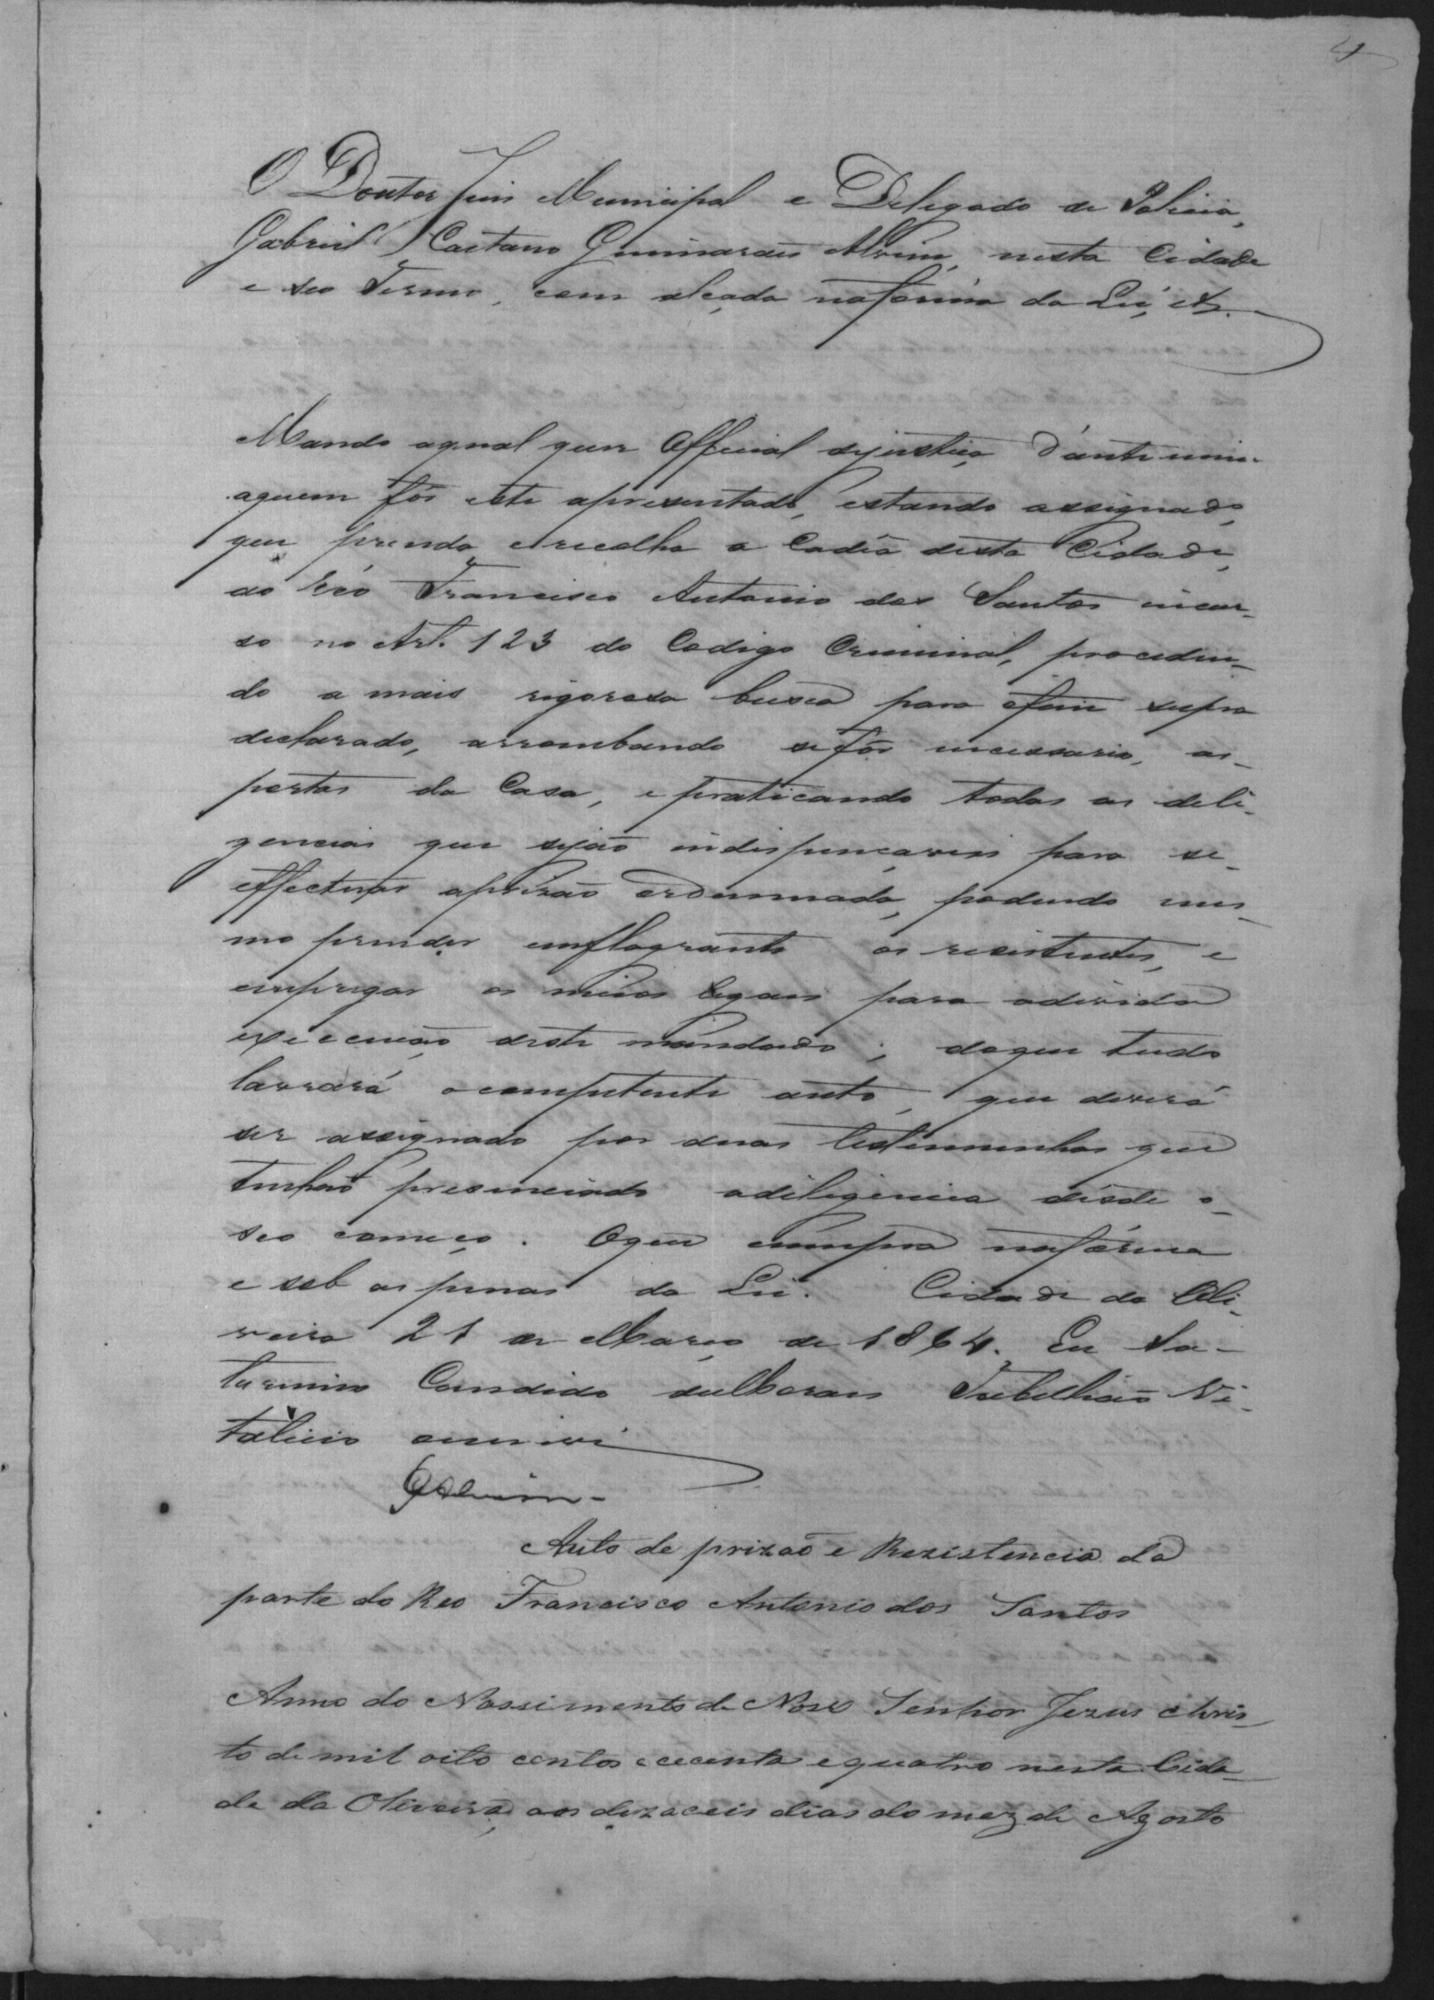 4
O Doutor Juis Municipal e Delegado de Policia,
Gabriel Caetano Guimarães Alvim, nesta Cidade
e seo Termo, com alçada naforma da Lei, &.
Mando aqualquer Official dejustiça d'ante mim
aquem fôr este apresentado, estando assignado,
que prenda, erecolha a Cadêa desta Cidade,
ao Réo Francisco Antonio dos Santos incur-
so no Art. 123 do Codigo Criminal, proceden-
do a mais rigorosa busca para ofim supra
declarado, arrombando sefôr necessario, as-
portas da Casa, e praticando todas as deli-
gencias que sejão indispençaveis para se-
effectuar aprizão ordennada, podendo mes-
mo prender emflagrante os resistentes, e
empregar os meios legaes para adevida
execução deste mandado; doque tudo
lavrará ocompetente auto, que deverá
ser assignado por duas testemunhas que
tenhão presenciado adiligencia desde o-
seo começo. Oque cumpra naforma
e sob aspenas da Lei. Cidade da Oli-
veira 21 de Março de 1864. Eu Sa-
turnino Candido Tabellião Vi-
talicio
GAlvim-
Auto de prizaõ e Rezistencia da
parte do Reo Francisco Antonio dos Santos
Anno do Nassimento de Noso Senhor Jezus chris-
to de mil oito centos e cecenta e quatro nesta Cida-
de da Oliveira, aos dezaceis dias do mez de Agosto